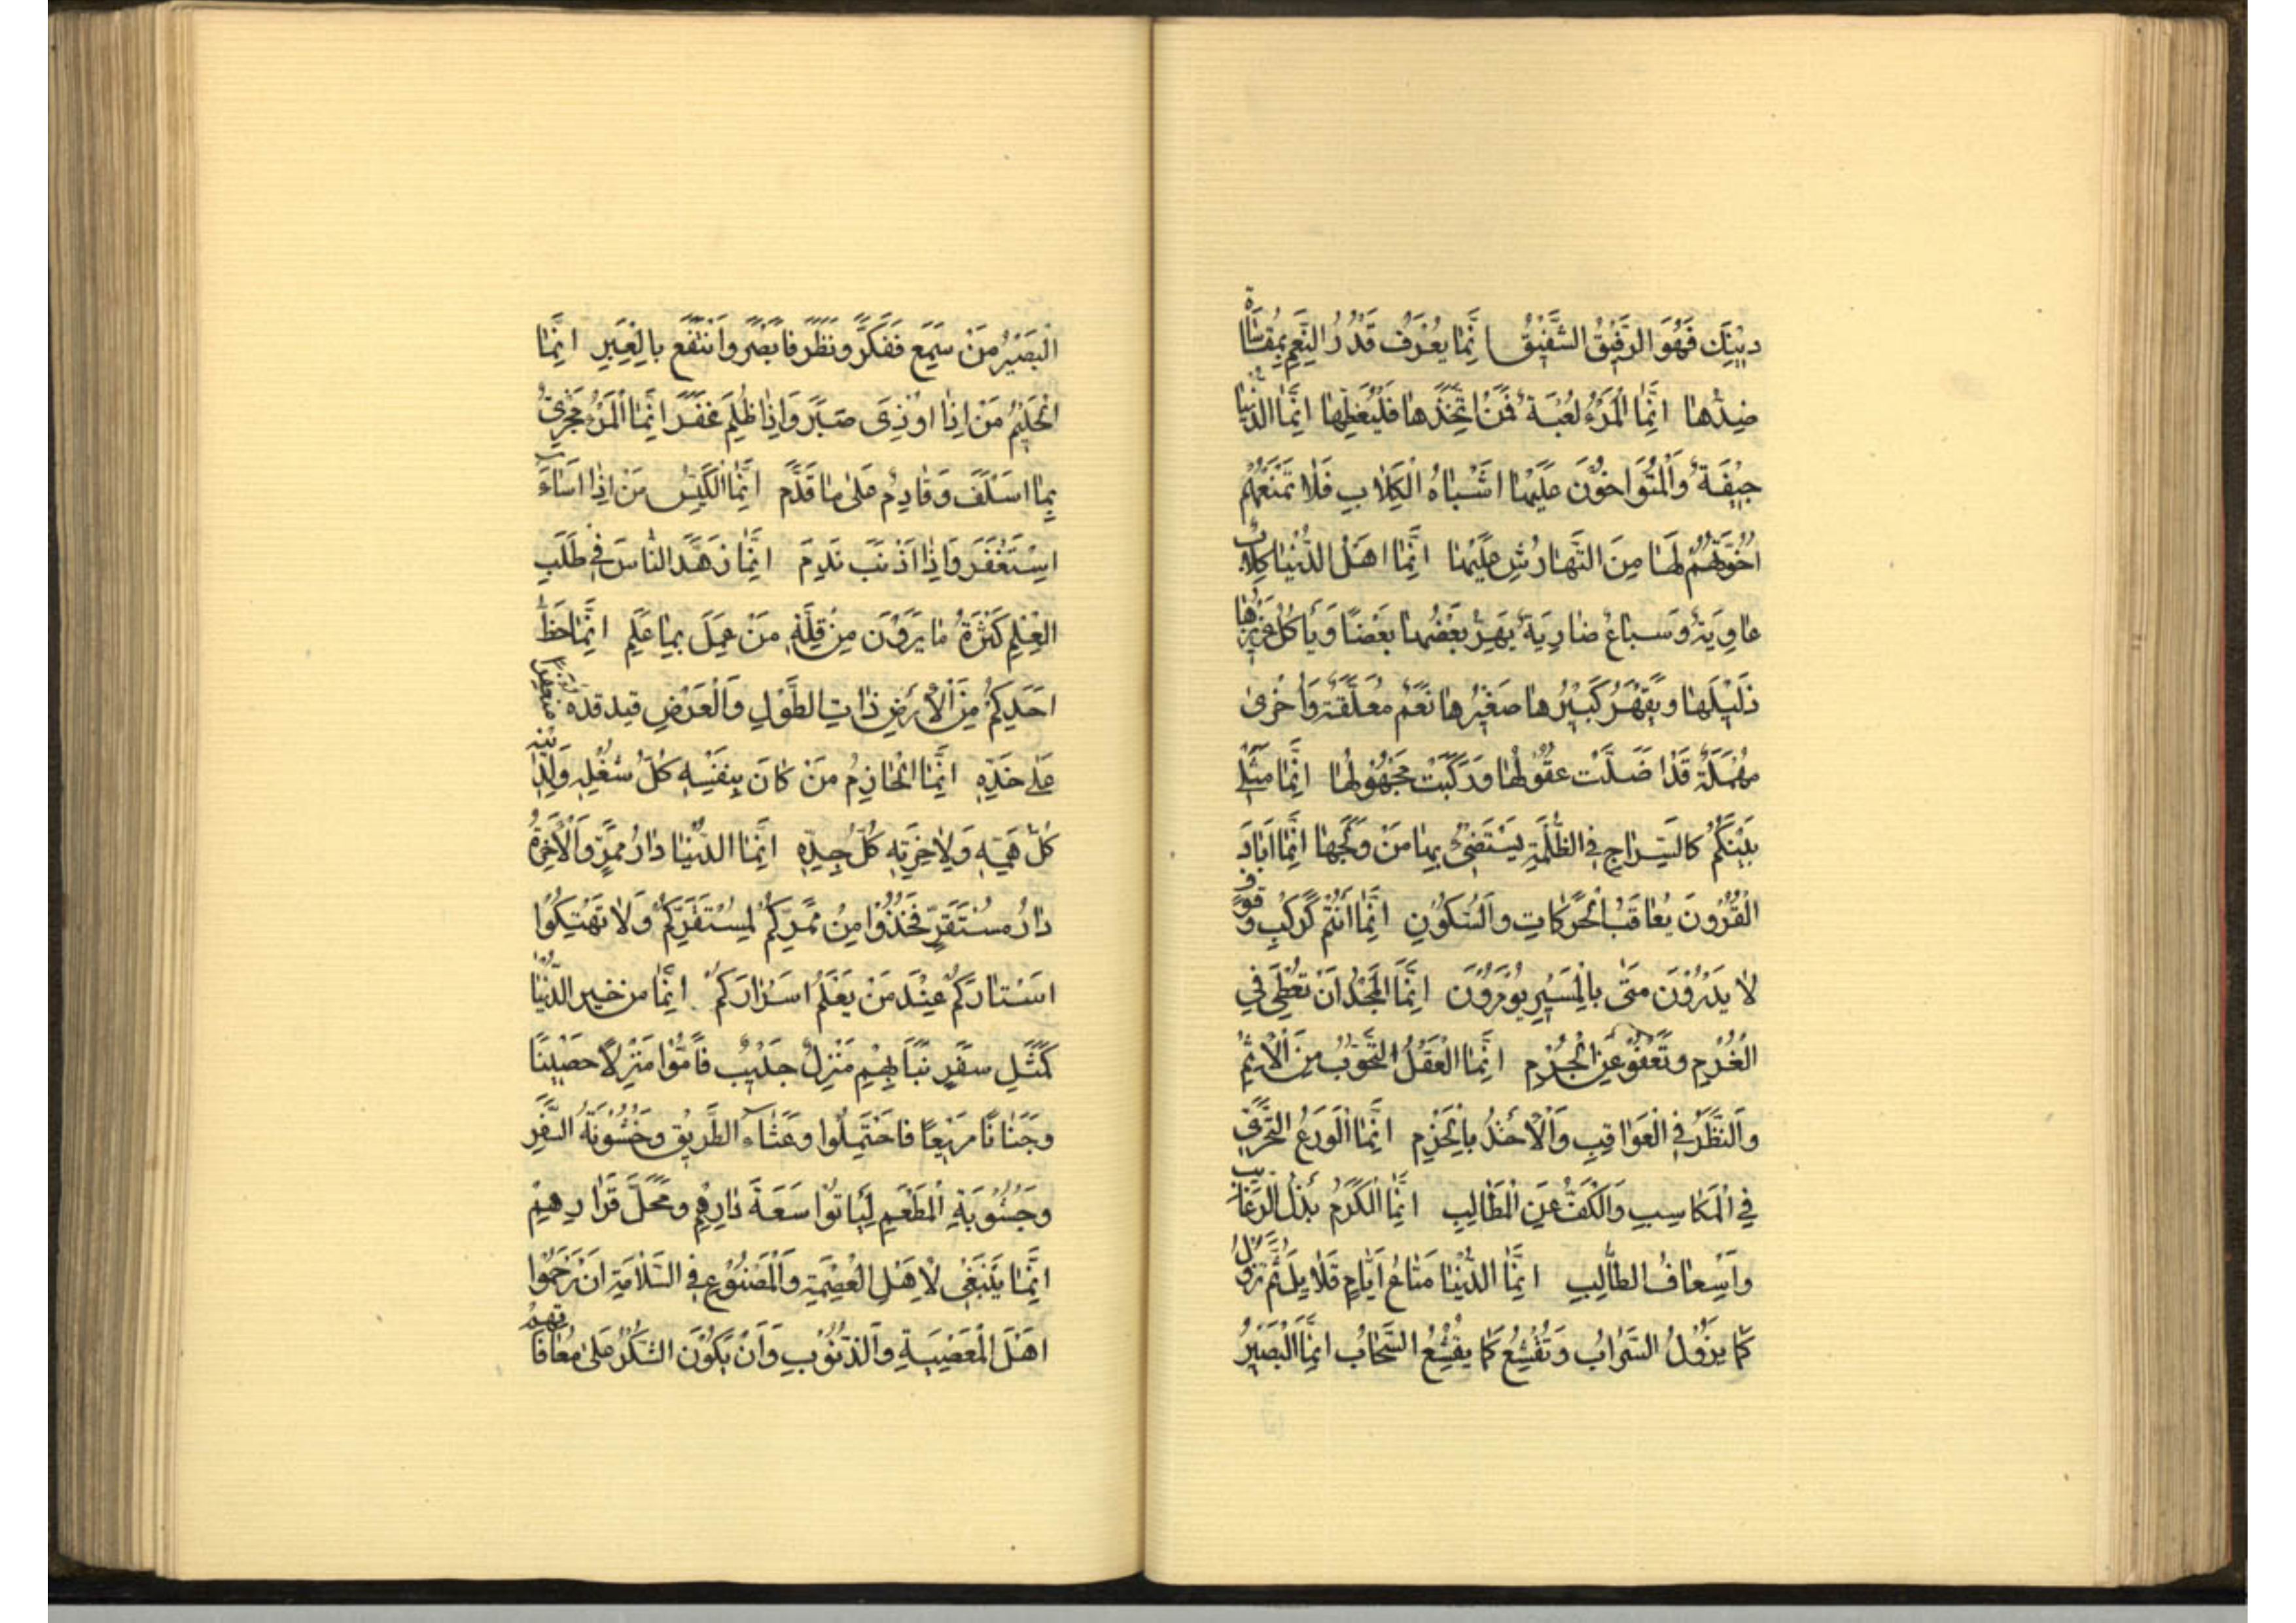 دِيْنِكَ فَهُوَ الرَّفِيْقُ الشَّفِيْقُ اِنَّمَا يُعْرَفُ قَدْرُ النِّعَمِ بِمُقَاسَاةِ
ضِدِّهَا اِنَّمَا الْمَرْءَةُ لُعْبَةٌ فَمَنِ اتَّخَذَهَا فَلْيُغَطِّهَا اِنَّمَا الدُّنْيَا
جِيْفَةٌ وَالْمُتَوَاخُوْنَ عَلَيْهَا اَشْبَاهُ الْكِلَابِ فَلَا تَمْنَعُهُمْ
اُخُوَّتُهُمْ لَهَا مِنَ التَّهَارُشِ عَلَيْهَا اِنَّمَا اَهْلُ الدُّنْيَا كِلَابٌ
عَاوِيَةٌ وَسِبَاعٌ ضَارِيَةٌ يَهِرُّ بَعْضُهَا بَعْضًا وَيَأْكُلُ عَزِيْزُهَا
ذَلِيْلَهَا وَيَقْهَرُ كَبِيْرُهَا صَغِيْرَهَا نَعَمٌ مُعَلَّقَةٌ وَاُخْرَى
مُهْمَلَةٌ قَدْ اَضَلَّتْ عُقُوْلَهَا وَرَكِبَتْ مَجْهُوْلَهَا اِنَّمَا مَثَلِي
بَيْنَكُمْ كَالسِّرَاجِ فِي الظُّلْمَةِ يَسْتَضِيْءُ بِهَا مَنْ وَلَجَهَا اِنَّمَا اَبَادَ
الْقُرُوْنَ تَعَاقُبُ الْحَرَكَاتِ وَالسُّكُوْنِ اِنَّمَا اَنْتُمْ كَرَكْبٍ وُقُوْفٍ
لَا يَدْرُوْنَ مَتَى بِالْمَسِيْرِ يُوْمَرُوْنَ اِنَّمَا الْمَجْدُ اَنْ تُعْطِيَ فِي
الْغُرْمِ وَتَعْفُوَ عَنِ الْجُرْمِ اِنَّمَا الْعَقْلُ التَّحَوُّبُ مِنَ الْاِثْمِ
وَالنَّظَرُ فِي الْعَوَاقِبِ وَالْاَخْذُ بِالْحَزْمِ اِنَّمَا الْوَرَعُ التَّحَرِّي
فِي الْمَكَاسِبِ وَالْكَفُّ عَنِ الْمَطَالِبِ اِنَّمَا الْكَرَمُ بَذْلُ الرَّغَائِبِ
وَاِسْعَافُ الطَّالِبِ اِنَّمَا الدُّنْيَا مَتَاعُ اَيَّامٍ قَلَايِلَ ثُمَّ تَزُوْلُ
كَمَا يَزُوْلُ السَّرَابُ وَتَقْشَعُ كَمَا يَقْشَعُ السَّحَابُ اِنَّمَا الْبَصِيْرُ
الْبَصِيْرُ مَنْ سَمِعَ فَفَكَّرَ وَنَظَرَ فَاَبْصَرَ وَانْتَفَعَ بِالْعِبَرِ اِنَّمَا
الْحَلِيْمُ مَنْ اِذَا اُوْذِيَ صَبَرَ وَاِذَا ظُلِمَ غَفَرَ اِنَّمَا الْمَرْءُ مَجْزِيٌّ
بِمَا اَسْلَفَ وَقَادِمٌ عَلَى مَا قَدَّمَ اِنَّمَا الْكَيِّسُ مَنْ اِذَا اَسَاءَ
اِسْتَغْفَرَ وَاِذَا اَذْنَبَ نَدِمَ اِنَّمَا زَهَّدَ النَّاسَ فِي طَلَبِ
الْعِلْمِ كَثْرَةُ مَا يَرَوْنَ مِنْ قِلَّةِ مَنْ عَمِلَ بِمَا عَلِمَ اِنَّمَا حَظُّ
اَحَدِكُمْ مِنَ الْاَرْضِ ذَاتِ الطُّوْلِ وَالْعَرْضِ قِيدُ قَدِّهِ مُتَعَفِّرًا
عَلَى خَدِّهِ اِنَّمَا الْحَازِمُ مَنْ كَانَ بِنَفْسِهِ كُلُّ شُغْلِهِ وَلِدِيْنِهِ
كُلُّ هَمِّهِ وَلِاٰخِرَتِهِ كُلُّ جِدِّهِ اِنَّمَا الدُّنْيَا دَارُ مَمَرٍّ وَالْاٰخِرَةُ
دَارُ مُسْتَقَرٍّ فَخُذُوْا مِنْ مَمَرِّكُمْ لِمُسْتَقَرِّكُمْ وَلَا تَهْتِكُوْا
اَسْتَارَكُمْ عِنْدَ مَنْ يَعْلَمُ اَسْرَارَكُمْ اِنَّمَا مَنْ خَبَرَ الدُّنْيَا
كَمَثَلِ سَفْرٍ نَبَا بِهِمْ مَنْزِلٌ جَدِيْبٌ فَاَمُّوْا مَنْزِلًا خَصِيْبًا
وَجَنَابًا مَرِيْعًا فَاحْتَمَلُوا وَعْثَاءَ الطَّرِيْقِ وَخُشُوْنَةَ السَّفَرِ
وَجُشُوْبَةَ الْمَطْعَمِ لِيَاتُوْا سَعَةَ دَارِهِمْ وَمَحَلَّ قَرَارِهِمْ
اِنَّمَا يَنْبَغِي لِاَهْلِ الْعِصْمَةِ وَالْمَصْنُوْعِ فِي السَّلَامَةِ اَنْ يَرْحَمُوا
اَهْلَ الْمَعْصِيَةِ وَالذُّنُوْبِ وَاَنْ يَكُوْنَ الشُّكْرُ عَلَى مُعَافَاتِهِمْ